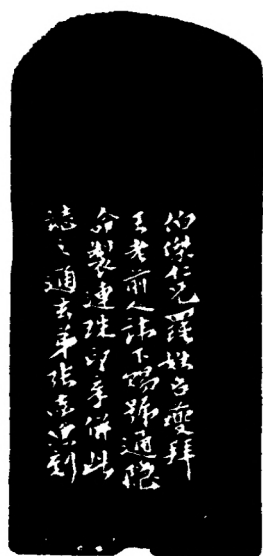 伯傑仁兄羅姓名瓊拜
王老前人詠下賜號通隱
命製連珠印章併此
誌之通玄弟張志漁刻